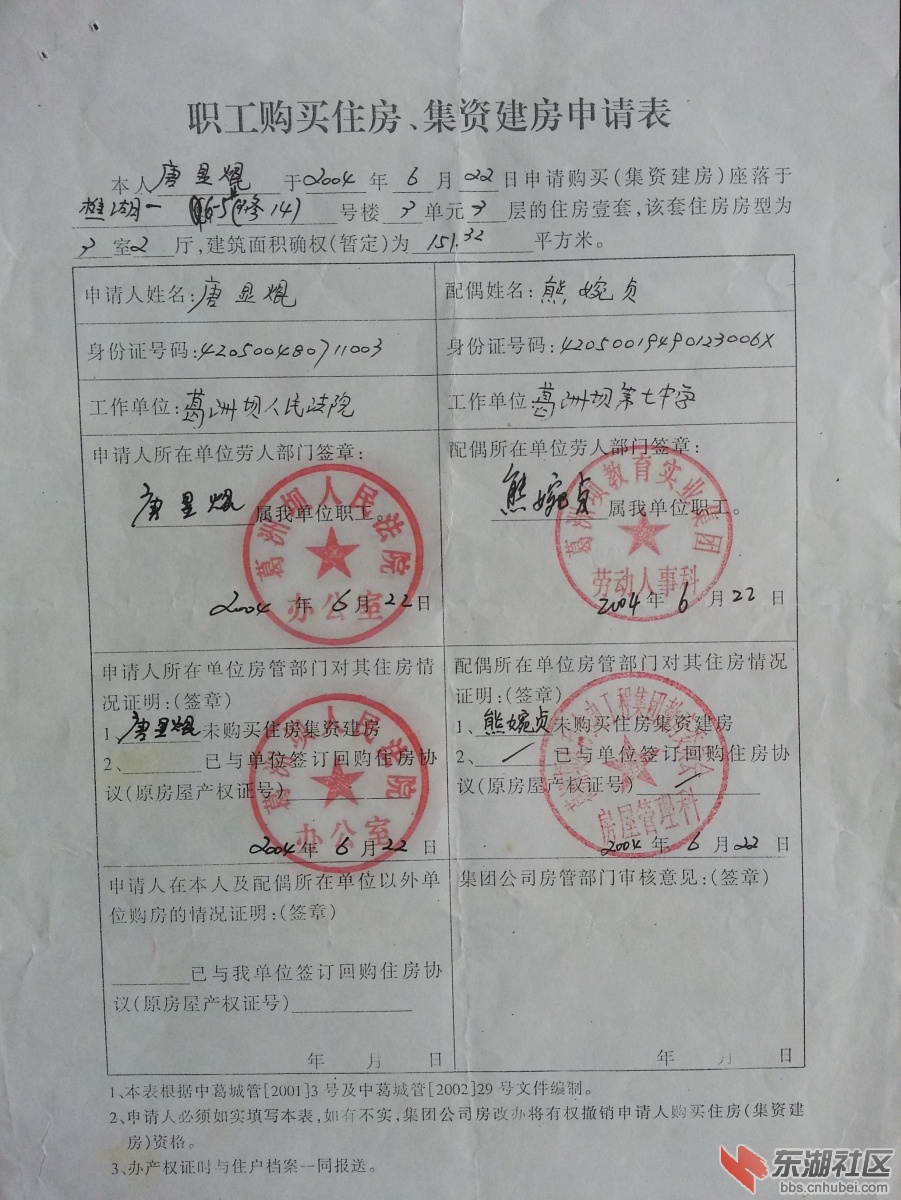 职工购买住房、集资建房申请表
本人 唐显焜 于2004年6月22日申请购买(集资建房)座落于
樵湖一 号楼 3 单元 3 层的住房壹套,该套住房房型为
3 室 2 厅,建筑面积确权(暂定)为 151.32 平方米。
申请人姓名:唐显焜
配偶姓名:熊婉贞
身份证号码:420500480711003
身份证号码:42050019490123006X
工作单位:葛洲坝人民法院
工作单位:葛洲坝第七中学
申请人所在单位劳人部门签章:
唐显焜 属我单位职工。
葛洲坝人民法院
办公室
2004年6月22日
配偶所在单位劳人部门签章:
熊婉贞 属我单位职工。
葛洲坝教育实业集团
劳动人事科
2004年6月22日
申请人所在单位房管部门对其住房情
况证明:(签章)
1、唐显焜 未购买住房集资建房
2、________已与单位签订回购住房协
议(原房屋产权证号)__________
葛洲坝人民法院
办公室
2004年6月22日
配偶所在单位房管部门对其住房情况
证明:(签章)
1、熊婉贞 未购买住房集资建房
2、 / 已与单位签订回购住房协
议(原房屋产权证号) /
工程集团
房屋管理科
2004年6月22日
申请人在本人及配偶所在单位以外单
位购房的情况证明:(签章)
________已与我单位签订回购住房协
议(原房屋产权证号)__________
年 月 日
集团公司房管部门审核意见:(签章)
年 月 日
1、本表根据中葛城管[2001]3号及中葛城管[2002]29号文件编制。
2、申请人必须如实填写本表,如有不实,集团公司房改办将有权撤销申请人购买住房(集资建
房)资格。
3、办产权证时与住户档案一同报送。
东湖社区
bbs.cnhubei.com